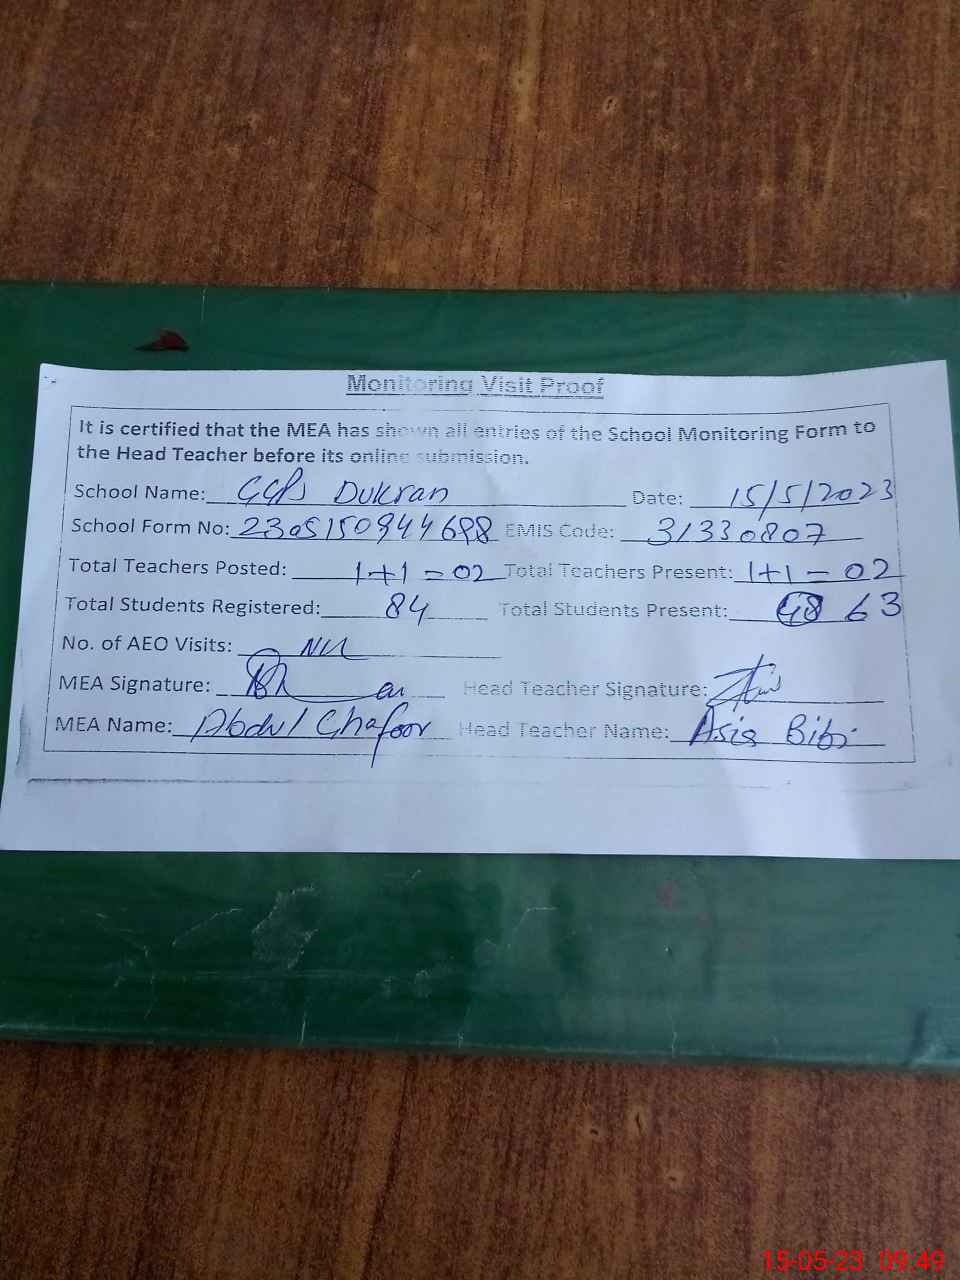 Monitoring Visit Proof
It is certified that the MEA has shown all entries of the School Monitoring Form to
the Head Teacher before its online submission.
School Name: GGPS Dukran Date: 15/5/2023
School Form No: 2305150944688 EMIS Code: 31330807
Total Teachers Posted: 1+1=02 Total Teachers Present: 1+1=02
Total Students Registered: 84 Total Students Present: 48 63
No. of AEO Visits: Nil
MEA Signature: Head Teacher Signature:
MEA Name: Abdul Ghafoor Head Teacher Name: Asia Bibi
15-05-23 09:49